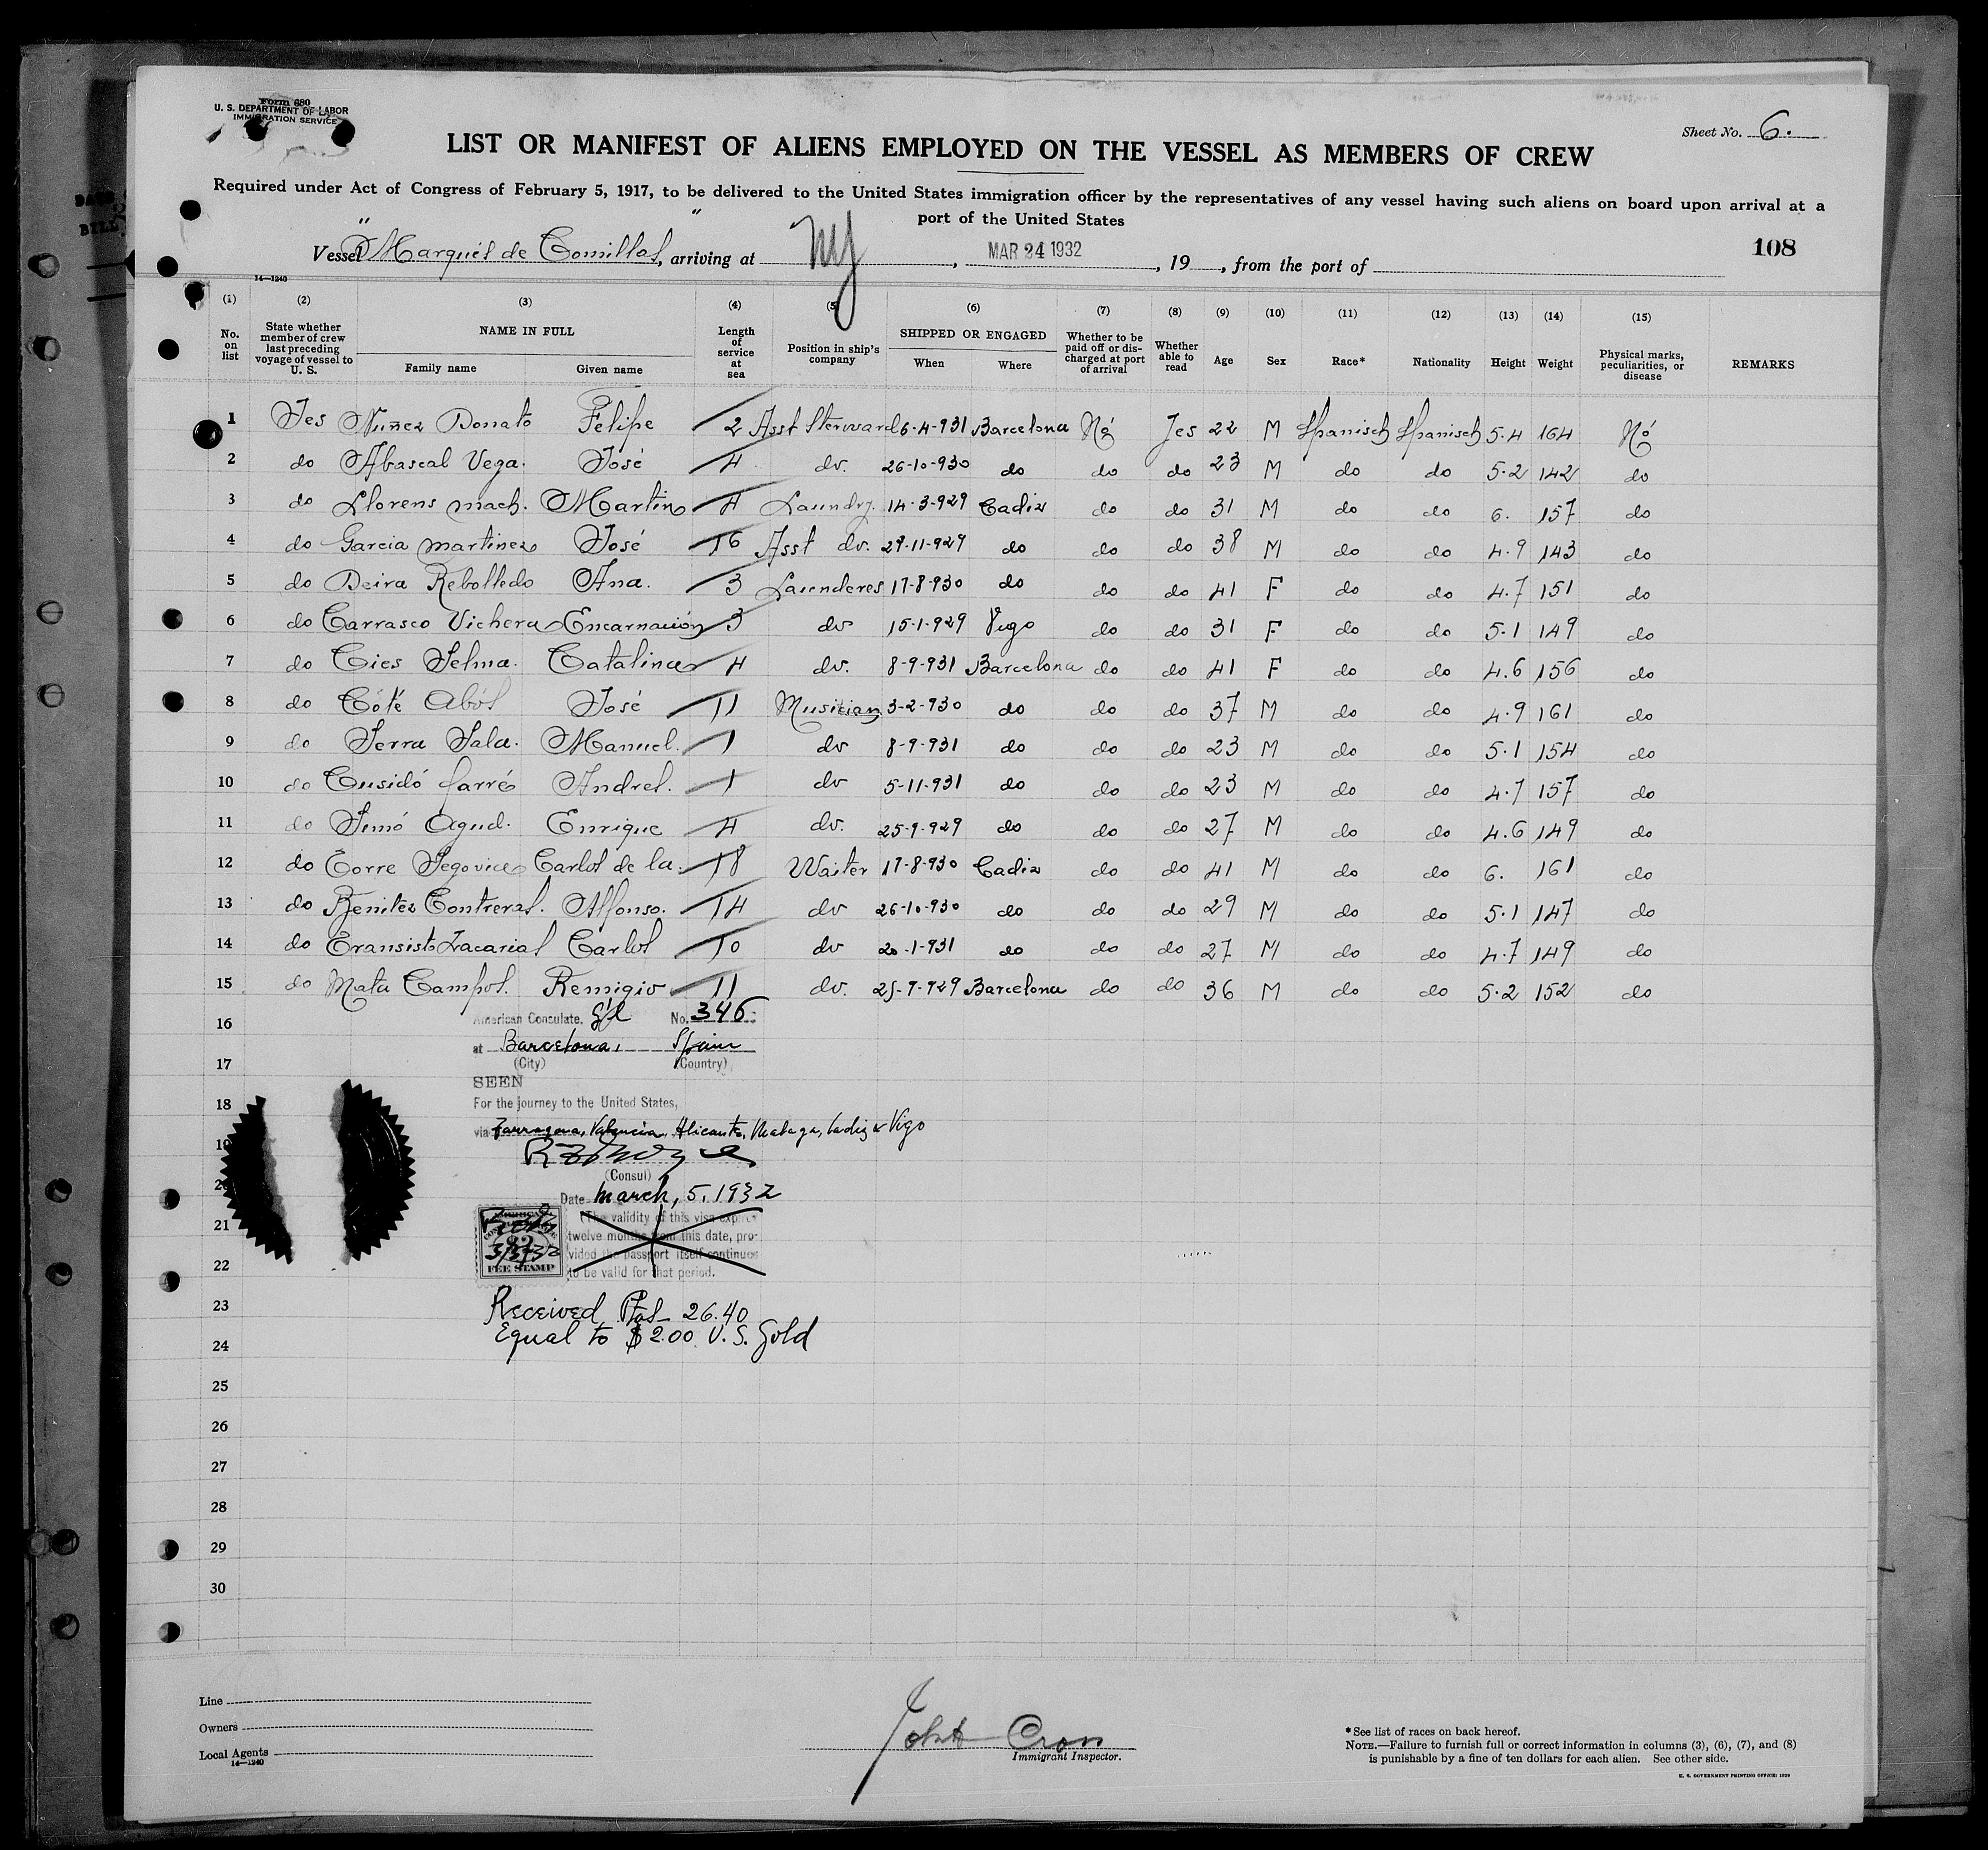 Form 680
U. S. DEPARTMENT OF LABOR
IMMIGRATION SERVICE
Sheet No. 6.
LIST OR MANIFEST OF ALIENS EMPLOYED ON THE VESSEL AS MEMBERS OF CREW
Required under Act of Congress of February 5, 1917, to be delivered to the United States immigration officer by the representatives of any vessel having such aliens on board upon arrival at a
port of the United States
108
Vessel "Marqués de Comillas", arriving at NY, MAR 24 1932, 19, from the port of
14—1240
(1) (2) (3) (4) (5) (6) (7) (8) (9) (10) (11) (12) (13) (14) (15)
No. on list State whether member of crew last preceding voyage of vessel to U. S. NAME IN FULL Family name Given name Length of service at sea Position in ship's company SHIPPED OR ENGAGED When Where Whether to be paid off or discharged at port of arrival Whether able to read Age Sex Race* Nationality Height Weight Physical marks, peculiarities, or disease REMARKS
1 Yes Nuñez Donato Felipe 2 Asst Sterward 6-4-931 Barcelona Nó Yes 22 M Spanisch Spanisch 5.4 164 Nó
2 do Abascal Vega. José 4 do. 26-10-930 do do do 23 M do do 5.2 142 do
3 do Llorens Mach. Martin 4 Laundry. 14-3-929 Cadiz do do 31 M do do 6. 157 do
4 do Garcia Martinez José 16 Asst do. 29-11-929 do do do 38 M do do 4.9 143 do
5 do Deira Rebolledo Ana. 3 Launderes 17-8-930 do do do 41 F do do 4.7 151 do
6 do Carrasco Vichera Encarnación 3 do 15-1-929 Vigo do do 31 F do do 5.1 149 do
7 do Cies Selma. Catalina 4 do. 8-9-931 Barcelona do do 41 F do do 4.6 156 do
8 do Cóté Abós José 11 Musician 3-2-930 do do do 37 M do do 4.9 161 do
9 do Serra Sala. Manuel. 1 do 8-9-931 do do do 23 M do do 5.1 154 do
10 do Cusidó farré Andres. 1 do 5-11-931 do do do 23 M do do 4.7 157 do
11 do Simó Agud. Enrique 4 do. 25-9-929 do do do 27 M do do 4.6 149 do
12 do Torre Segovia Carlos de la. 18 Waiter 17-8-930 Cadiz do do 41 M do do 6. 161 do
13 do Benitez Contreras. Alfonso. 14 do 26-10-930 do do do 29 M do do 5.1 147 do
14 do Transisto Zacarias Carlos 10 do 20-1-931 do do do 27 M do do 4.7 149 do
15 do Mata Campos. Remigio 11 do. 25-9-929 Barcelona do do 36 M do do 5.2 152 do
16
American Consulate, Gl No. 346
at Barcelona, Spain
17
(City) (Country)
SEEN
18
For the journey to the United States,
via Tarragona, Valencia, Alicante, Malaga, Cadiz & Vigo
19
(Consul)
20
Date March, 5, 1932
21
(The validity of this visa expires
twelve months from this date, pro-
vided the passport itself continues
to be valid for that period.
FEE STAMP
22
23
Received Ptas 26.40
Equal to $ 2.00 U. S. Gold
24
25
26
27
28
29
30
Line
Owners
Local Agents
14—1240
John Cron
Immigrant Inspector.
*See list of races on back hereof.
NOTE.—Failure to furnish full or correct information in columns (3), (6), (7), and (8)
is punishable by a fine of ten dollars for each alien. See other side.
U. S. GOVERNMENT PRINTING OFFICE: 1929